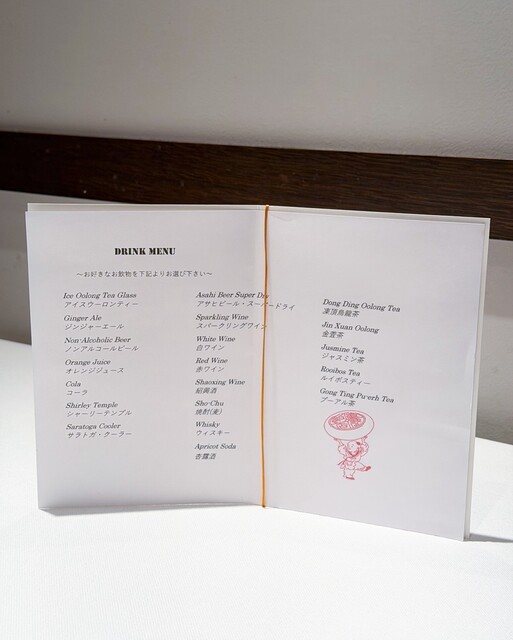 DRINK MENU
～お好きなお飲物を下記よりお選び下さい～
Ice Oolong Tea Glass
アイスウーロンティー
Ginger Ale
ジンジャーエール
Non-Alcoholic Beer
ノンアルコールビール
Orange Juice
オレンジジュース
Cola
コーラ
Shirley Temple
シャーリーテンプル
Saratoga Cooler
サラトガ・クーラー
Asahi Beer Super Dry
アサヒビール・スーパードライ
Sparkling Wine
スパークリングワイン
White Wine
白ワイン
Red Wine
赤ワイン
Shaoxing Wine
紹興酒
Sho-Chu
焼酎(麦)
Whisky
ウィスキー
Apricot Soda
杏露酒
Dong Ding Oolong Tea
凍頂烏龍茶
Jin Xuan Oolong
金萱茶
Jasmine Tea
ジャスミン茶
Rooibos Tea
ルイボスティー
Gong Ting Pu-erh Tea
プーアル茶